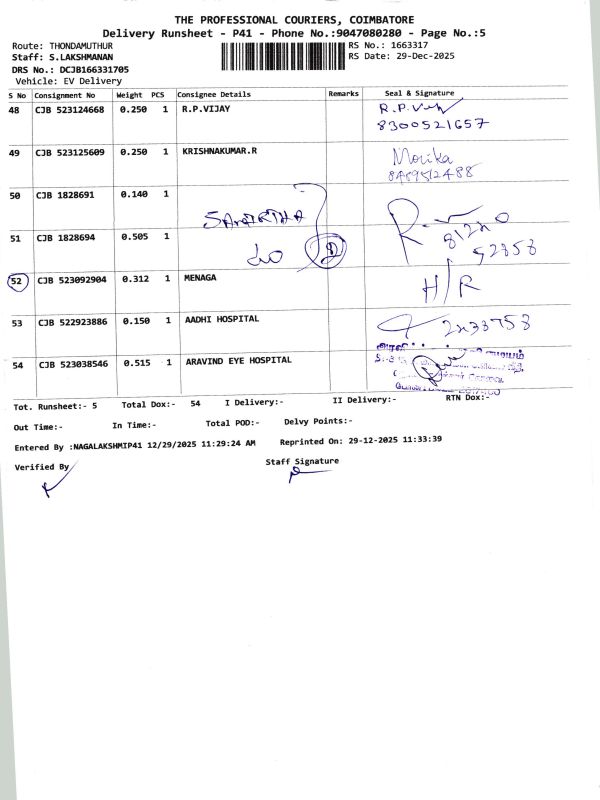 THE PROFESSIONAL COURIERS, COIMBATORE
Delivery Runsheet - P41 - Phone No.:9047080280 - Page No.:5
Route: THONDAMUTHUR
RS No.: 1663317
Staff: S.LAKSHMANAN
RS Date: 29-Dec-2025
DRS No.: DCJB166331705
Vehicle: EV Delivery
S No Consignment No Weight PCS Consignee Details Remarks Seal & Signature
48 CJB 523124668 0.250 1 R.P.VIJAY R.P.Vijay
8300521657
49 CJB 523125609 0.250 1 KRISHNAKUMAR.R
8489512488
50 CJB 1828691 0.140 1
51 CJB 1828694 0.505 1
52 CJB 523092904 0.312 1 MENAGA H/R
53 CJB 522923886 0.150 1 AADHI HOSPITAL
54 CJB 523038546 0.515 1 ARAVIND EYE HOSPITAL
Tot. Runsheet:- 5 Total Dox:- 54 I Delivery:- II Delivery:- RTN Dox:-
Out Time:- In Time:- Total POD:- Delvy Points:-
Entered By :NAGALAKSHMIP41 12/29/2025 11:29:24 AM Reprinted On: 29-12-2025 11:33:39
Verified By Staff Signature